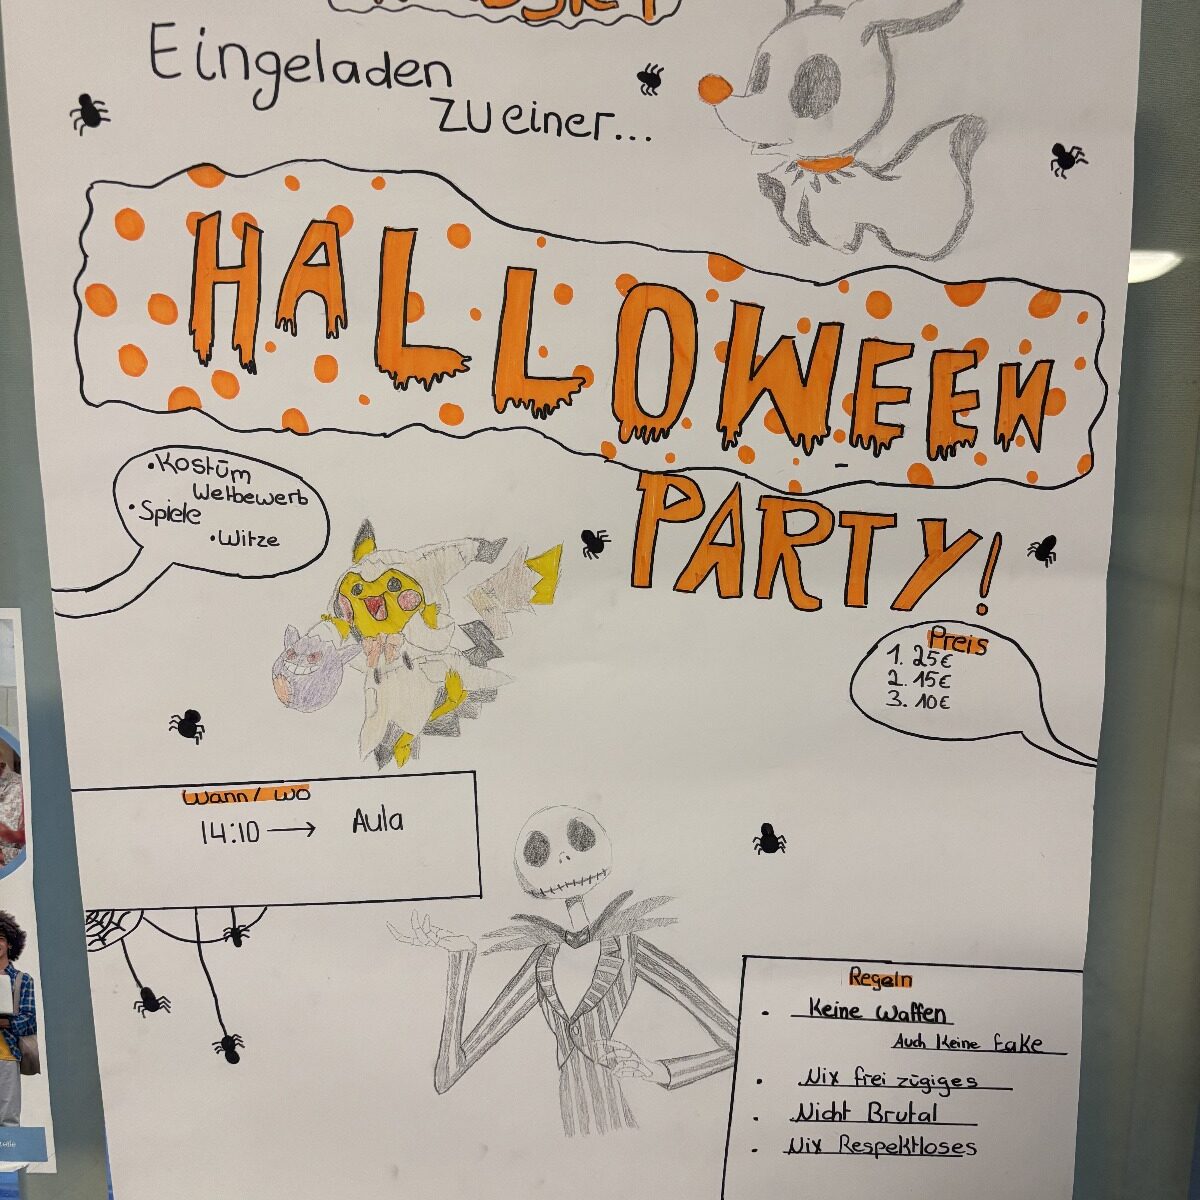 Eingeladen
zu einer...
HALLOWEEN
PARTY!
• Kostüm
Wetbewerb
• Spiele
• Witze
Preis
1. 25€
2. 15€
3. 10€
Wann / Wo
14:10 → Aula
Regeln
• Keine Waffen
Auch Keine Fake
• Nix freizügiges
• Nicht Brutal
• Nix Respektloses